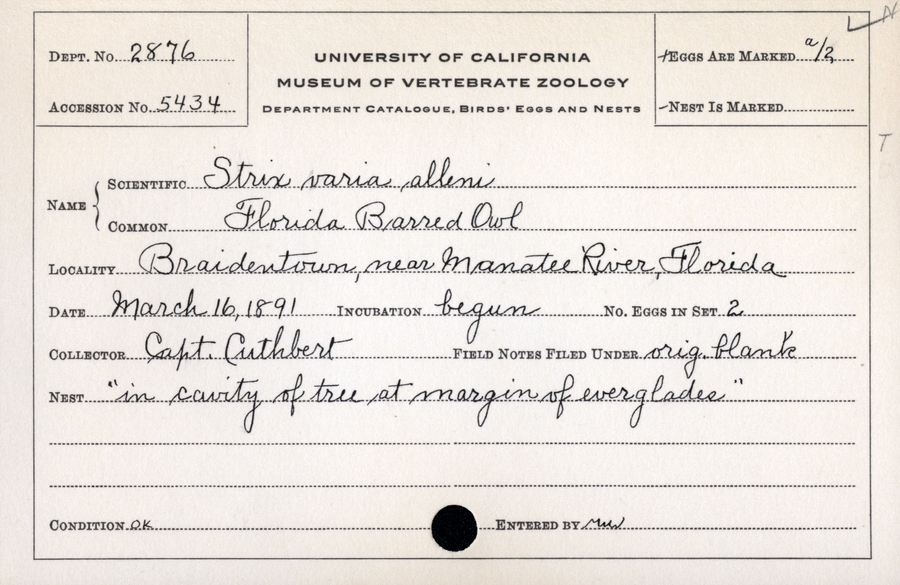 DEPT. NO. 2876
ACCESSION NO. 5434
UNIVERSITY OF CALIFORNIA
MUSEUM OF VERTEBRATE ZOOLOGY
DEPARTMENT CATALOGUE, BIRDS' EGGS AND NESTS
EGGS ARE MARKED a/2
NEST IS MARKED
N
T
NAME
SCIENTIFIC Strix varia alleni
COMMON Florida Barred Owl
LOCALITY Braidentown, near Manatee River, Florida
DATE March 16, 1891 INCUBATION begun NO. EGGS IN SET 2
COLLECTOR Capt. Cuthbert FIELD NOTES FILED UNDER orig. blank
NEST "in cavity of tree at margin of everglades"
CONDITION OK ENTERED BY